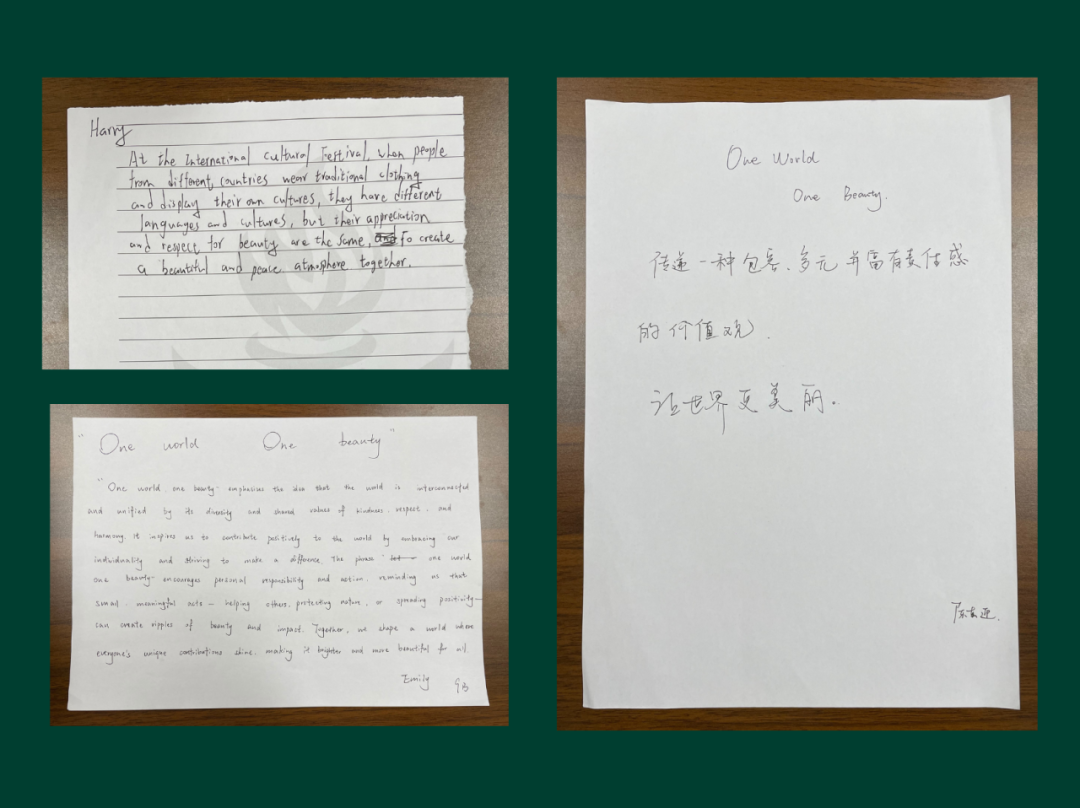 Harry
At the International Cultural Festival, when people
from different countries wear traditional clothing
and display their own cultures, they have different
languages and cultures, but their appreciation
and respect for beauty are the same, to create
a beautiful and peace atmophere together.
"One world One beauty"
"One world one beauty" emphasises the idea that the world is interconnected
and unified by its diversity and shared values of kindness, respect, and
harmony. It inspires us to contribute positively to the world by embracing our
individuality and striving to make a difference. The phrase "one world
one beauty" encourages personal responsibility and action, reminding us that
small, meaningful acts — helping others, protecting nature, or spreading positivity —
can create ripples of beauty and impact. Together, we shape a world where
everyone's unique contributions shine, making it brighter and more beautiful for all.
Emily 9B
One World
One Beauty.
传递一种包容、多元并富有责任感
的价值观.
让世界更美丽.